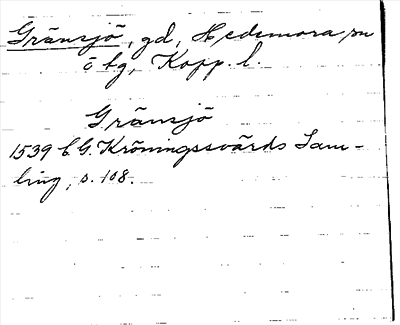 Gränsjö, gd, Hedemora sn
o tg, Kopp. l.
Gränsjö
1539 C.G. Kröningssvärds Sam-
ling, s. 108.